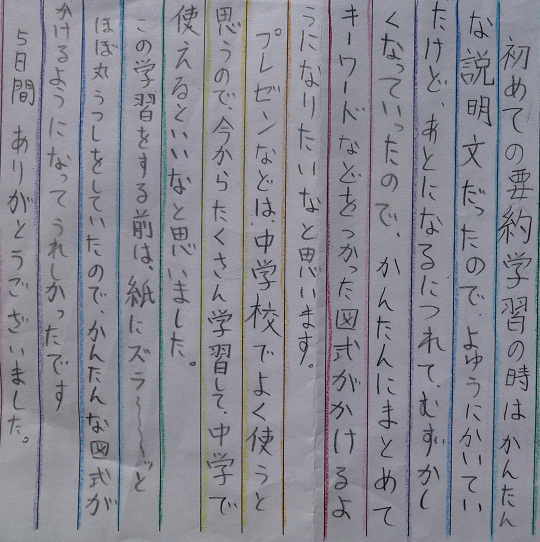 初めての要約学習の時はかんたん
な説明文だったので、よゆうにかいてい
たけど、あとになるにつれて、むずかし
くなっていったので、かんたんにまとめて
キーワードなどをつかった図式がかけるよ
うになりたいなと思います。
プレゼンなどは、中学校でよく使うと
思うので、今からたくさん学習して、中学で
使えるといいなと思いました。
この学習をする前は、紙にズラ～～～ッと
ほぼ丸うつしをしていたので、かんたんな図式が
かけるようになってうれしかったです
5日間ありがとうございました。